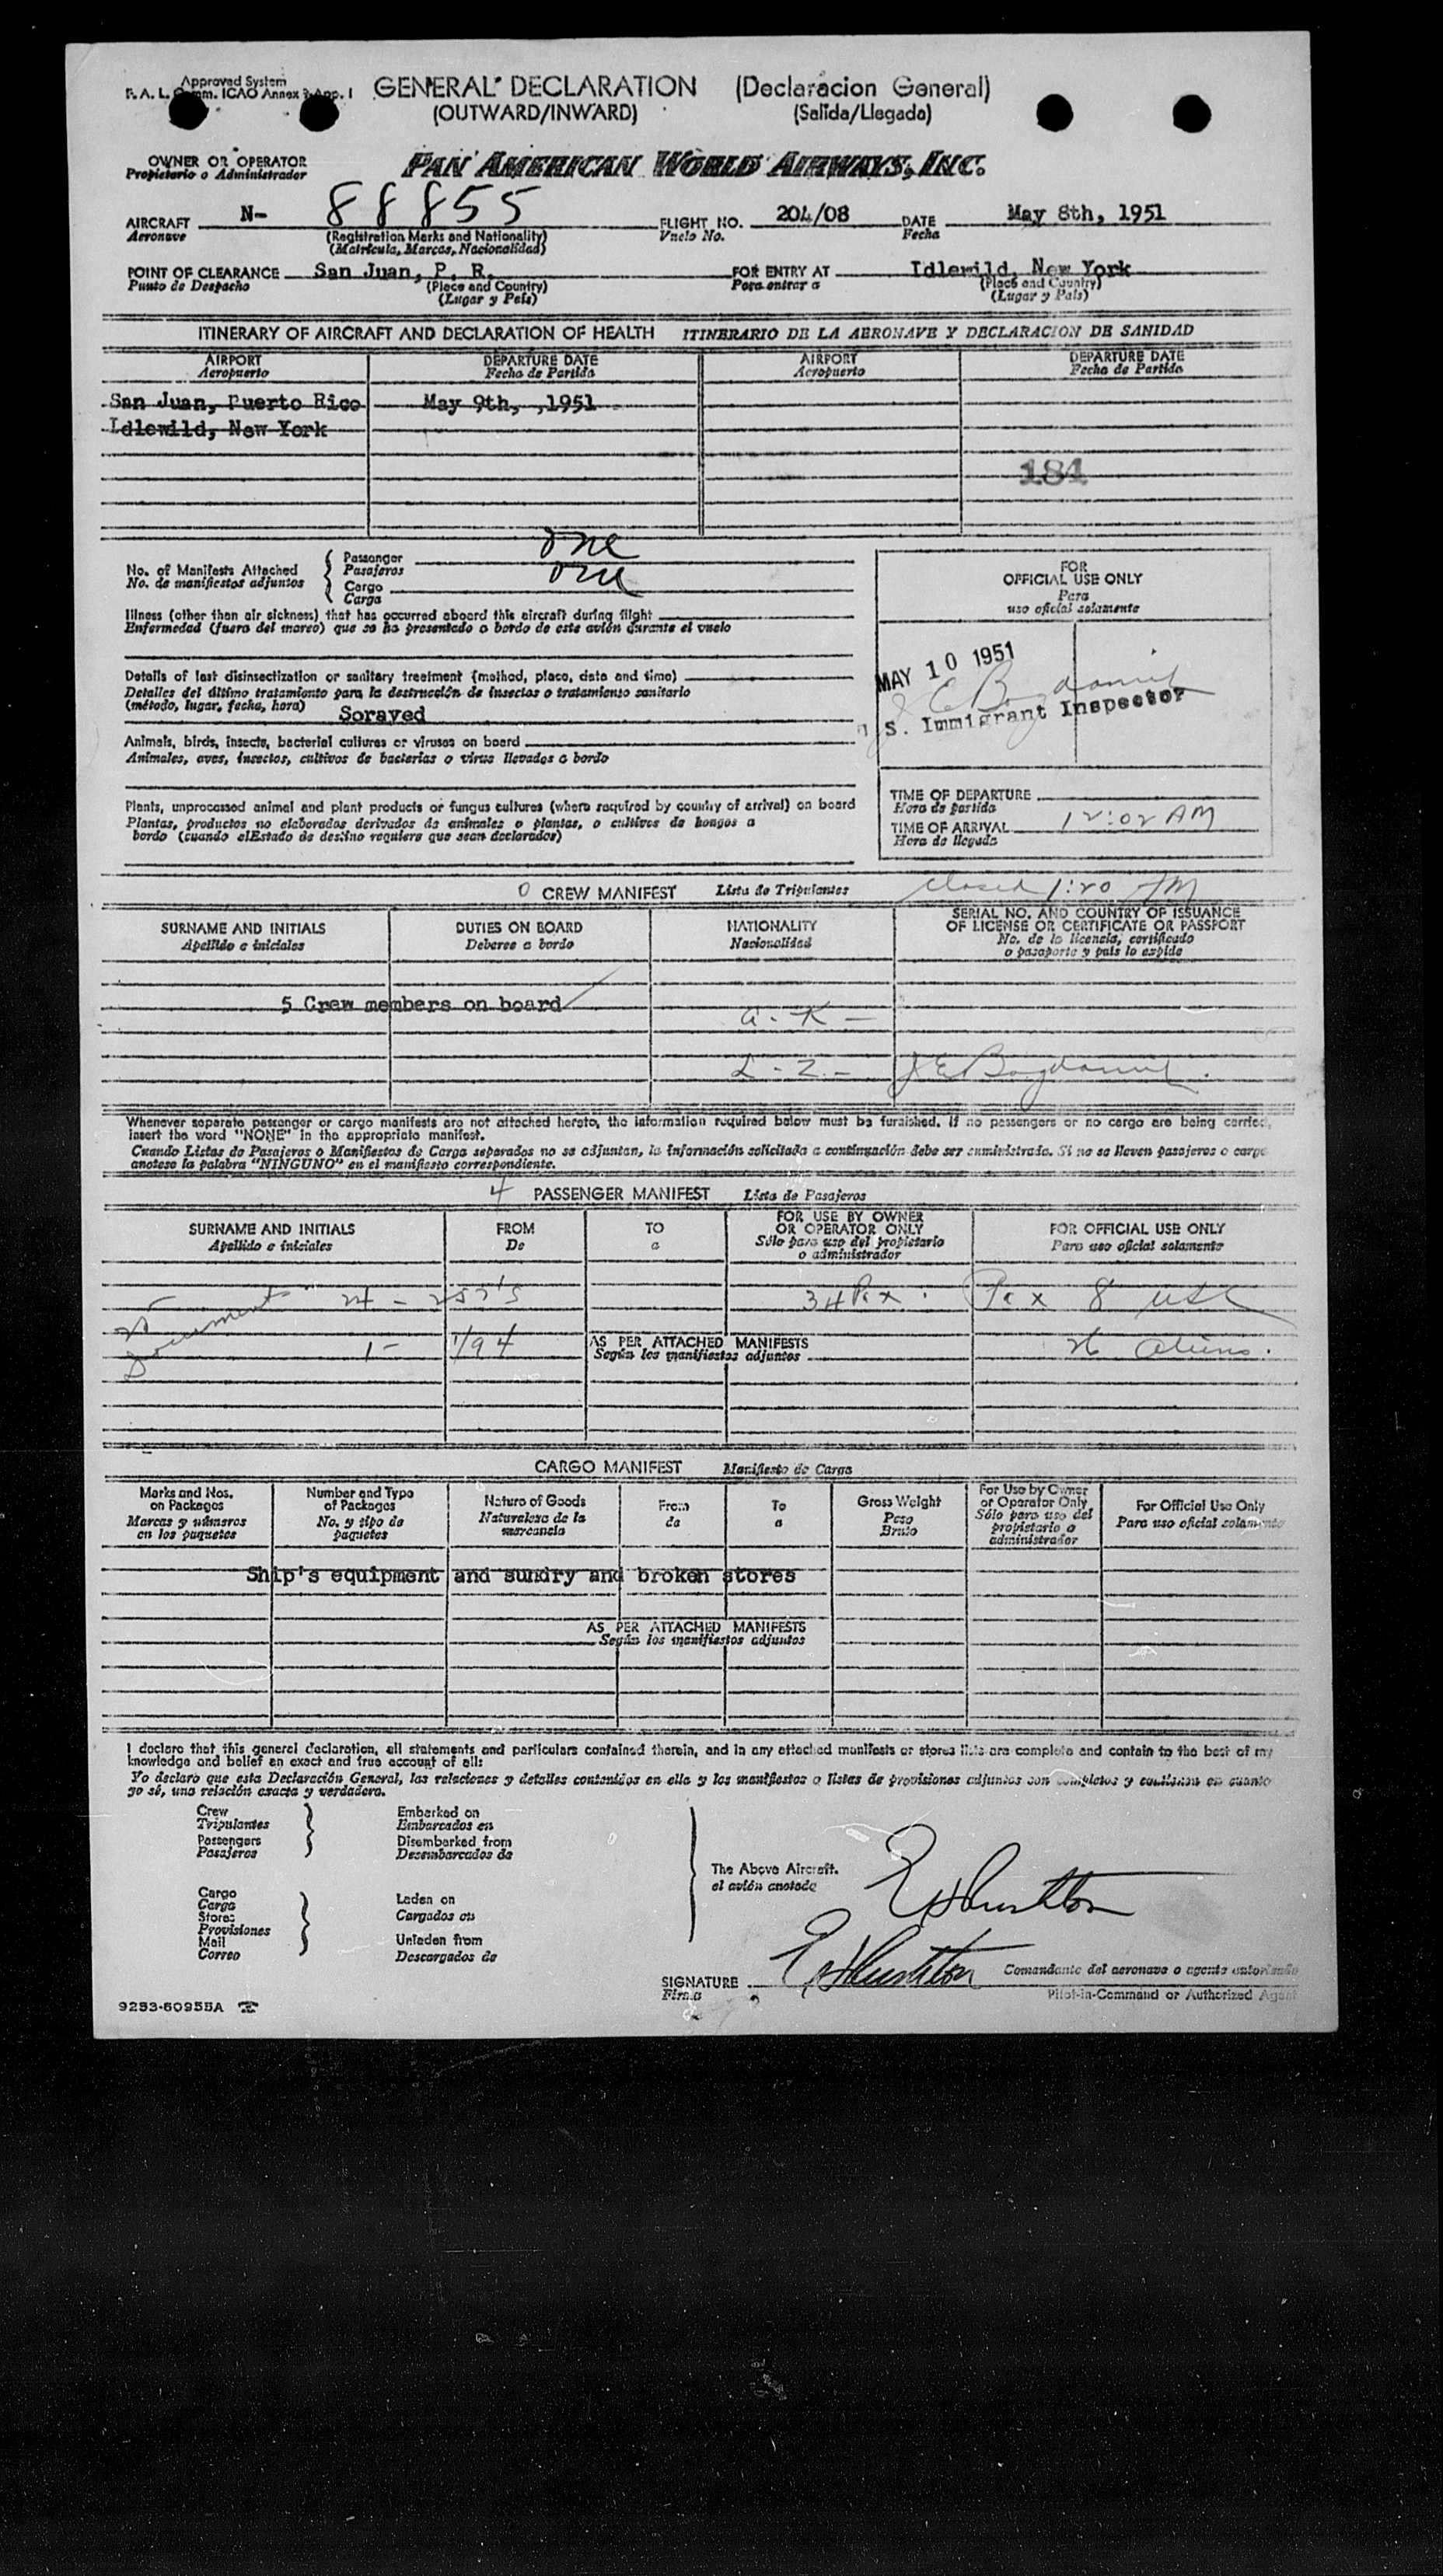 Approved System
F. A. L. Comm. ICAO Annex App. 1
GENERAL DECLARATION (Declaracion General)
(OUTWARD/INWARD) (Salida/Llegada)
OWNER OR OPERATOR
Propietario o Administrador
PAN AMERICAN WORLD AIRWAYS, INC.
AIRCRAFT N- 88855 FLIGHT NO. 204/08 DATE May 8th, 1951
Aeronave (Registration Marks and Nationality) Vuelo No. Fecha
(Matrícula, Marcas, Nacionalidad)
POINT OF CLEARANCE San Juan, P. R. FOR ENTRY AT Idlewild, New York
Punto de Despacho (Place and Country) Para entrar a (Place and Country)
(Lugar y País) (Lugar y País)
ITINERARY OF AIRCRAFT AND DECLARATION OF HEALTH ITINERARIO DE LA AERONAVE Y DECLARACION DE SANIDAD
AIRPORT DEPARTURE DATE AIRPORT DEPARTURE DATE
Aeropuerto Fecha de Partida Aeropuerto Fecha de Partida
San Juan, Puerto Rico May 9th, ,1951
Idlewild, New York
184
No. of Manifests Attached Passenger one
No. de manifiestos adjuntos Pasajeros
Cargo one
Carga
FOR
OFFICIAL USE ONLY
Para
uso oficial solamente
Illness (other than air sickness) that has occurred aboard this aircraft during flight
Enfermedad (fuera del mareo) que se ha presentado a bordo de este avión durante el vuelo
MAY 10 1951
J E Bogdanich
S. Immigrant Inspector
Details of last disinsectization or sanitary treatment (method, place, date and time)
Detalles del último tratamiento para la destrucción de insectos o tratamiento sanitario
(método, lugar, fecha, hora)
Sprayed
Animals, birds, insects, bacterial cultures or viruses on board
Animales, aves, insectos, cultivos de bacterias o virus llevados a bordo
Plants, unprocessed animal and plant products or fungus cultures (where required by country of arrival) on board
Plantas, productos no elaborados derivados de animales o plantas, o cultivos de hongos a
bordo (cuando elEstado de destino requiere que sean declarados)
TIME OF DEPARTURE
Hora de partida
TIME OF ARRIVAL 12:02 AM
Hora de llegada
0 CREW MANIFEST Lista de Tripulantes closed 1:20 AM
SURNAME AND INITIALS DUTIES ON BOARD NATIONALITY SERIAL NO. AND COUNTRY OF ISSUANCE
OF LICENSE OR CERTIFICATE OR PASSPORT
Apellido e iniciales Deberes a bordo Nacionalidad No. de la licencia, certificado
o pasaporte y país lo expide
5 Crew members on board
a - K -
L - Z -
Whenever separate passenger or cargo manifests are not attached hereto, the information required below must be furnished. If no passengers or no cargo are being carried,
insert the word "NONE" in the appropriate manifest.
Cuando Listas de Pasajeros o Manifiestos de Carga separados no se adjuntan, la información solicitada a continuación debe ser suministrada. Si no se lleven pasajeros o carga
anotese la palabra "NINGUNO" en el manifiesto correspondiente.
4 PASSENGER MANIFEST Lista de Pasajeros
SURNAME AND INITIALS FROM TO FOR USE BY OWNER
OR OPERATOR ONLY FOR OFFICIAL USE ONLY
Apellido e iniciales De a Sólo para uso del propietario
o administrador Para uso oficial solamente
Documents 24 - 257's 34 Pax Pax 8 USC
1 - 1/94 AS PER ATTACHED MANIFESTS 26 aliens.
Según los manifiestos adjuntos
CARGO MANIFEST Manifiesto de Carga
Marks and Nos.
on Packages
Marcas y números
en los paquetes
Number and Type
of Packages
No. y tipo de
paquetes
Nature of Goods
Naturaleza de la
mercancía
From
de
To
a
Gross Weight
Peso
Bruto
For Use by Owner
or Operator Only
Sólo para uso del
propietario o
administrador
For Official Use Only
Para uso oficial solamente
Ship's equipment and sundry and broken stores
AS PER ATTACHED MANIFESTS
Según los manifiestos adjuntos
I declare that this general declaration, all statements and particulars contained therein, and in any attached manifests or stores lists are complete and contain to the best of my
knowledge and belief an exact and true account of all:
Yo declaro que esta Declaración General, las relaciones y detalles contenidos en ella y los manifiestos o listas de provisiones adjuntos son completos y contienen en cuanto
yo sé, una relación exacta y verdadera.
Crew Embarked on
Tripulantes Embarcados en
Passengers Disembarked from
Pasajeros Desembarcados de
The Above Aircraft.
el avión anotado
Cargo Laden on
Carga Cargados en
Stores
Provisiones
Mail Unladen from
Correo Descargados de
SIGNATURE Comandante del aeronave o agente autorizado
Firma Pilot-in-Command or Authorized Agent
9283-60955A